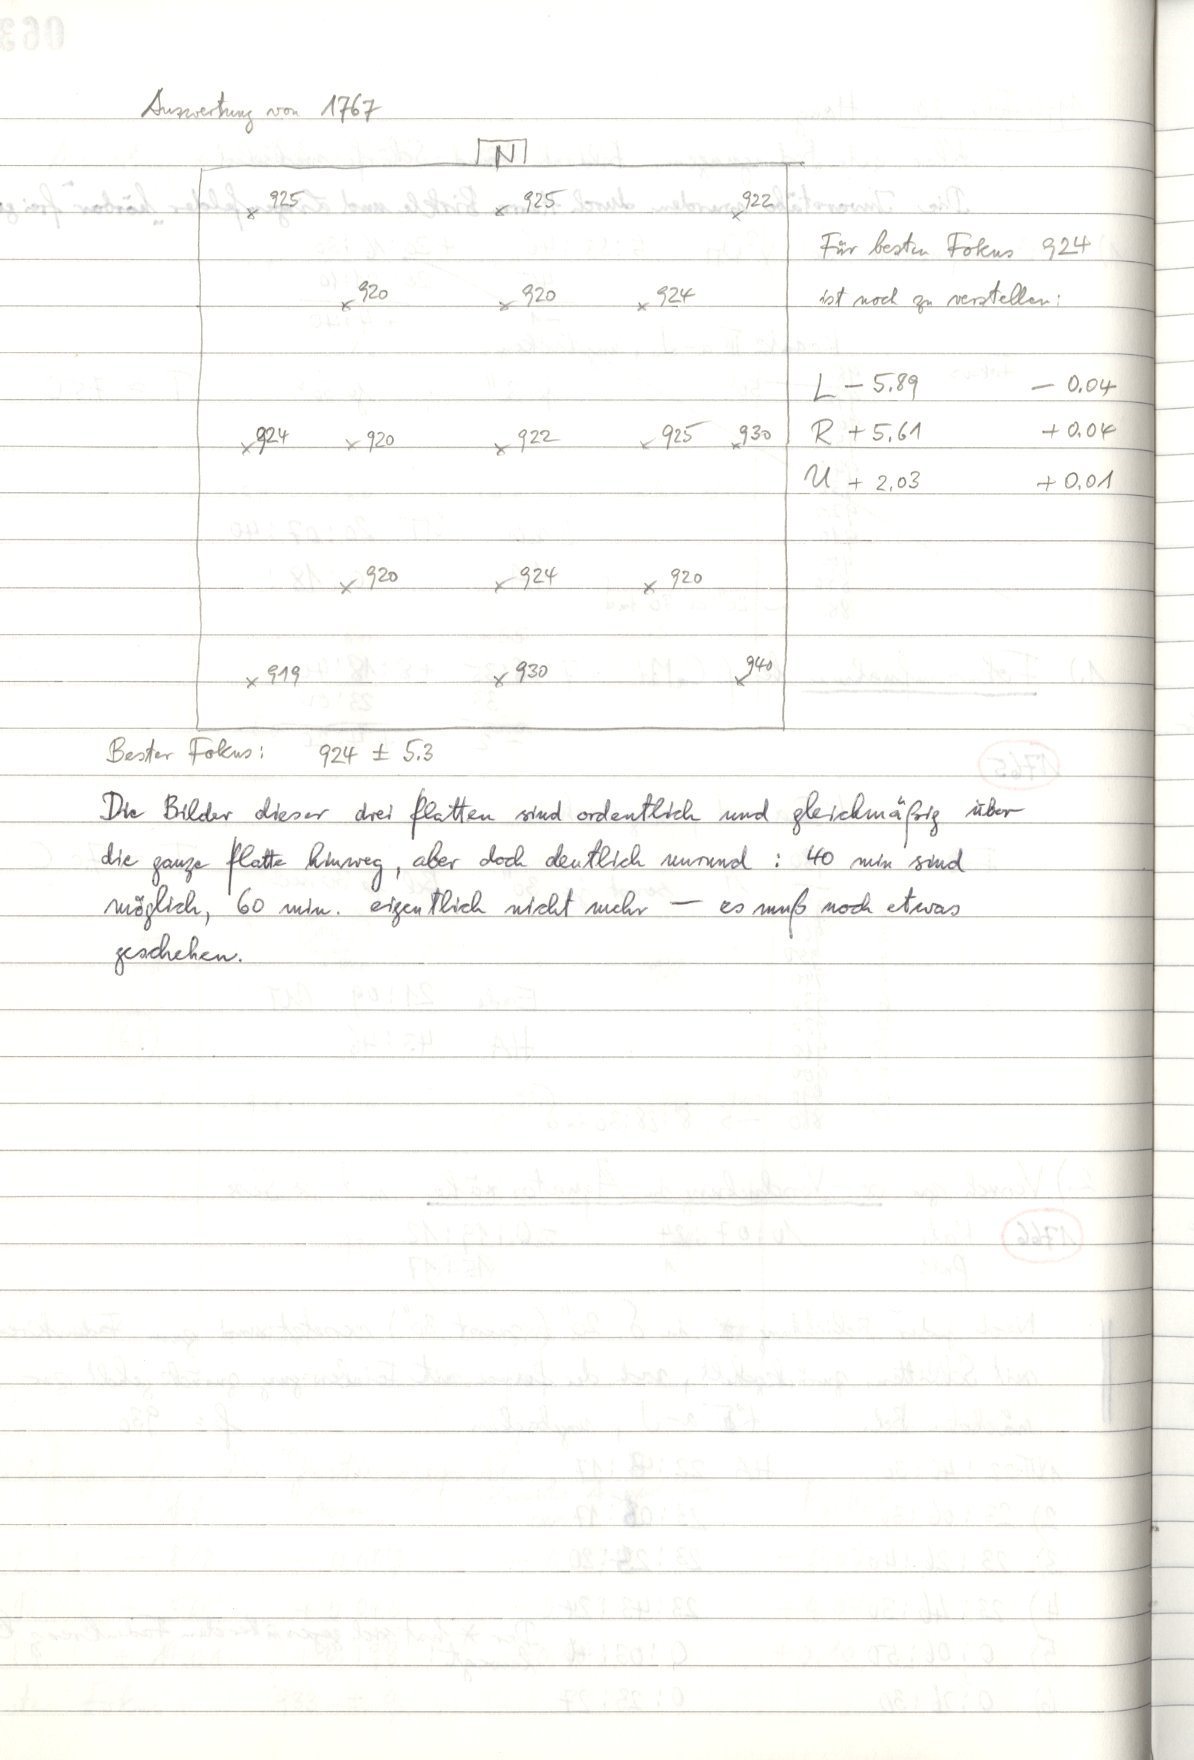 Auswertung von 1767
N
925 925 922
920 920 924
924 920 922 925 930
920 924 920
919 930 940
Für besten Fokus 924
ist noch zu verstellen:
L - 5.89 - 0.04
R + 5.61 + 0.04
U + 2.03 + 0.01
Bester Fokus: 924 ± 5.3
Die Bilder dieser drei Platten sind ordentlich und gleichmäßig über
die ganze Platte hinweg, aber doch deutlich unrund : 40 min sind
möglich, 60 min. eigentlich nicht mehr — es muß noch etwas
geschehen.